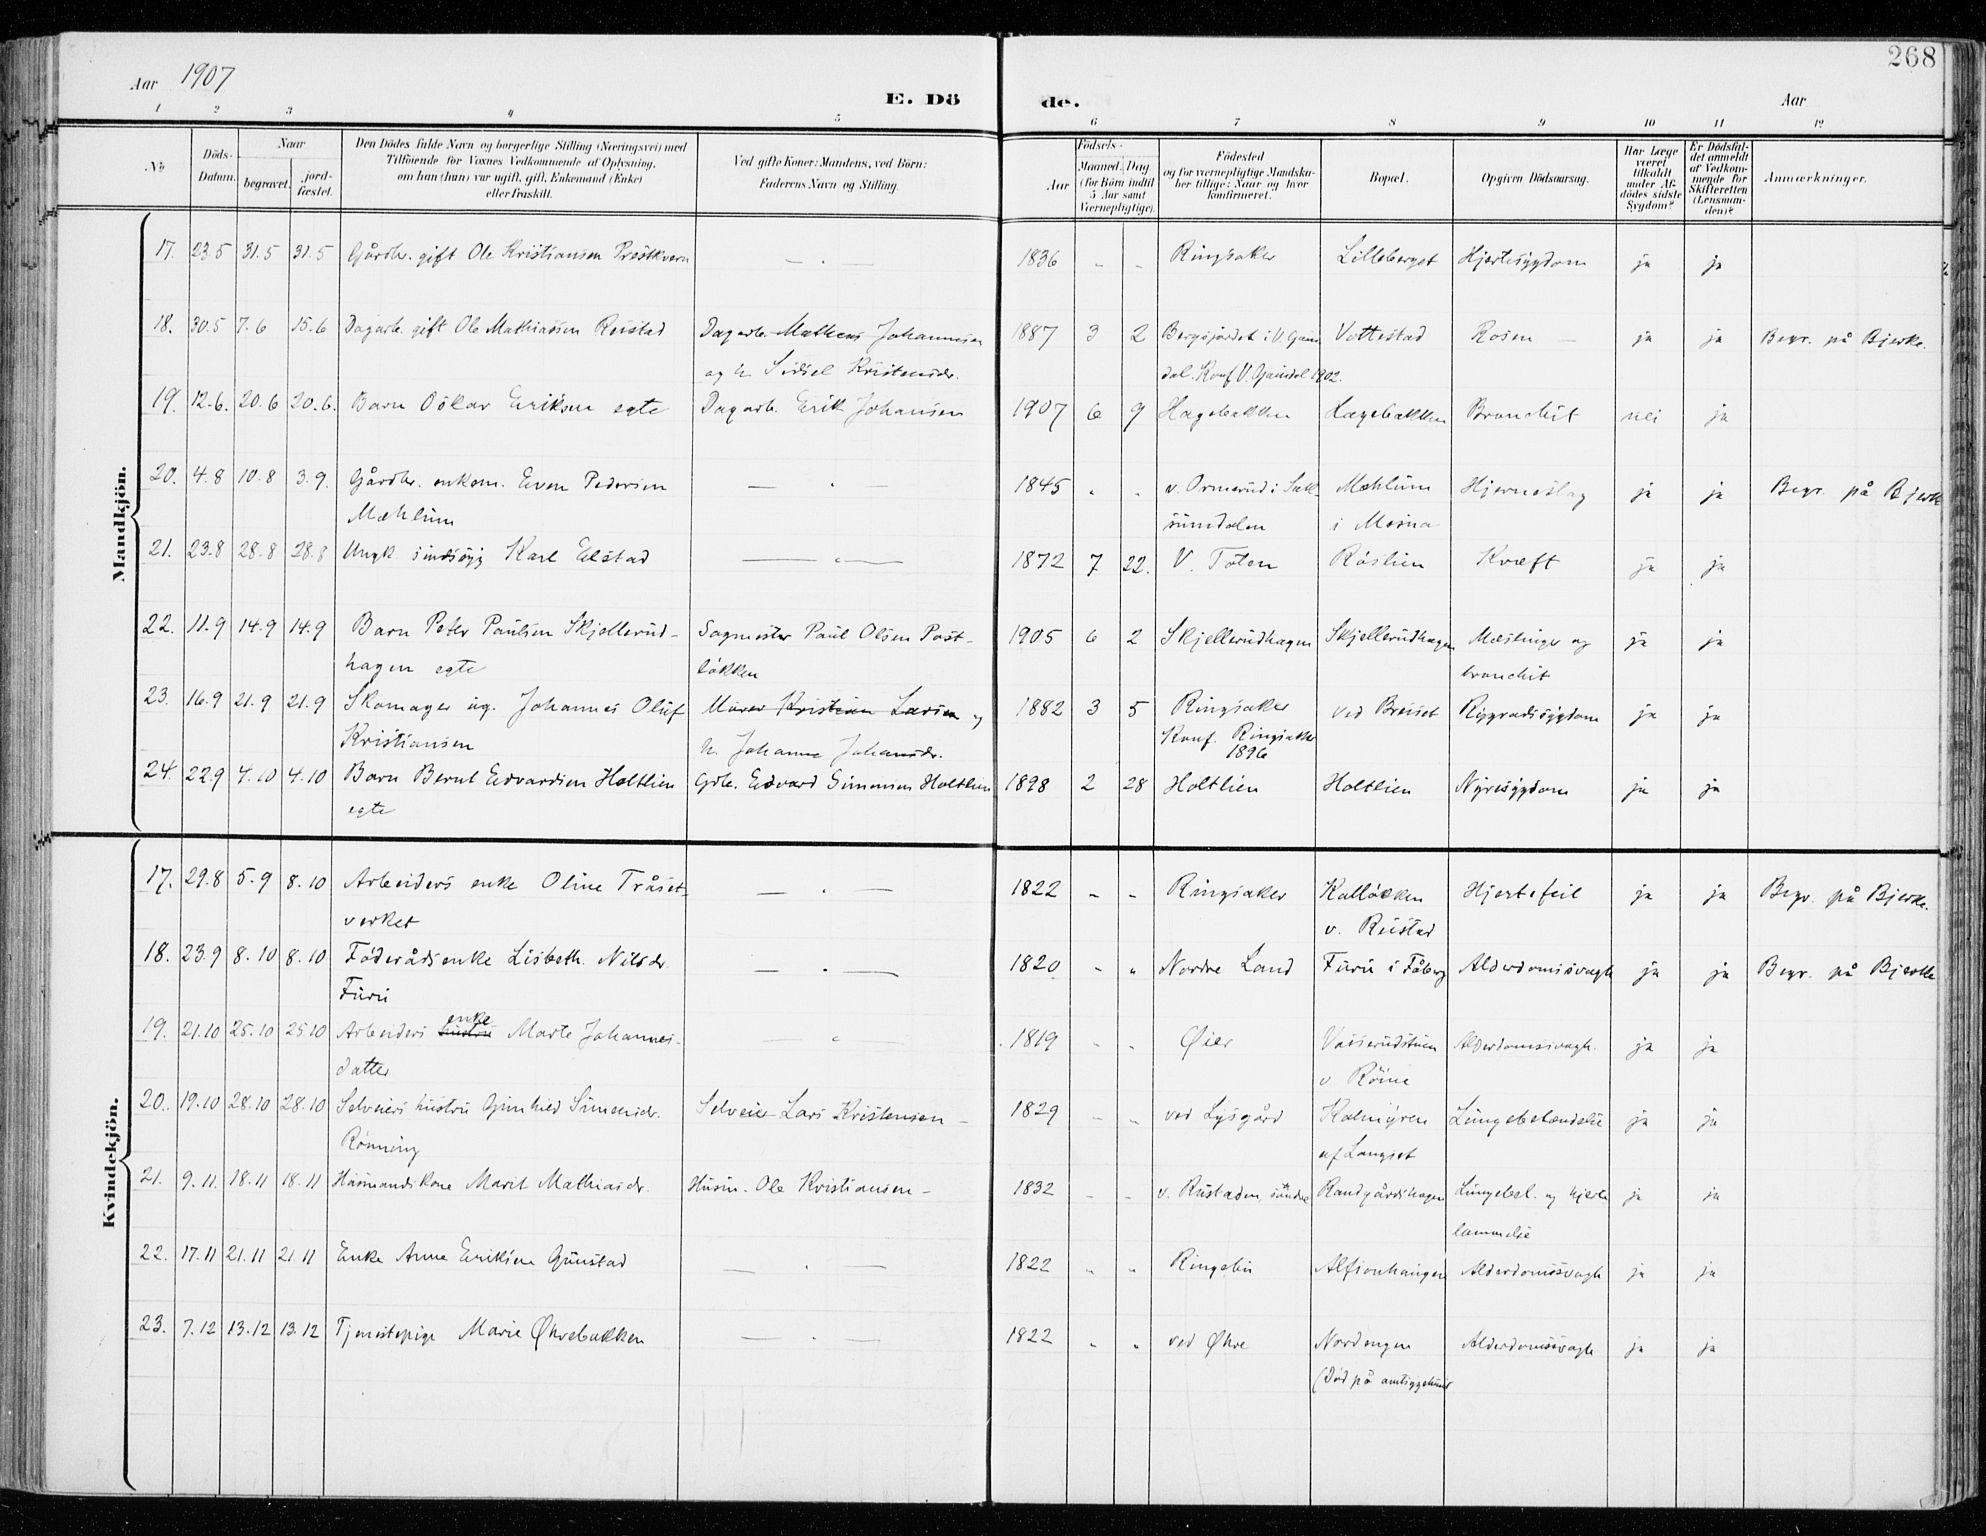 268
Aar 1907
E. Dö de.
Aar
1 2 3 4 5 6 7 8 9 10 11 12
No
Döds-Datum.
Naar
begravet.
jord-fæstet.
Den Dödes fulde Navn og borgerlige Stilling (Næringsvei) med
Tilföiende for Voxnes Vedkommende af Oplysning,
om han (hun) var ugift, gift, Enkemand (Enke)
eller fraskilt.
Ved gifte Koner: Mandens, ved Börn:
Faderens Navn og Stilling.
Födsels-
Aar
Maaned. Dag
(for Börn indtil
5 Aar samt
Værnepligtige).
Födested
og for værnepligtige Mandskaber tillige: Naar og hvor
konfirmeret.
Bopæl.
Opgiven Dödsaarsag.
Har Læge
været
tilkaldt
under Afdödes sidste
Sygdom?
Er Dödsfaldet anmeldt
af Vedkommende for
Skifteretten
(Lensmanden)?
Anmærkninger.
Mandkjön.
17. 23.5 31.5 31.5 Gårdbr. gift Ole Kristiansen Prestkvern — 1836 Ringsaker Lilleberget Hjertesygdom ja ja
18. 30.5 7.6 15.6 Dagarb. gift Ole Mathiassen Reistad Dagarb. Matheus Johannesen 1887 3 2 Bergsjordet i V. Gaus Vottestad Rosen — ja ja Begr. på Bjerke.
og h. Sidsel Kristensdr. dal. Konf V. Gausdal 1902.
19. 12.6. 20.6 20.6. Barn Oskar Eriksen egte Dagarb. Erik Johansen 1907 6 9 Hagebakken Hagebakken Bronchit nei ja
20. 4.8 10.8 3.9. Gårdbr. enkem. Even Pedersen — 1845 v. Ormerud i Sak- Mæhlum Hjerneslag ja ja Begr. på Bjerke
Mæhlum sumdalen i Mesna
21. 23.8 28.8 28.8 Ungk sindssyg Karl Elstad — 1872 7 22. V. Toten Röslien Kræft ja ja
22. 11.9 14.9 14.9 Barn Peter Paulsen Skjellerud- Sagmester Paul Olsen Post- 1905 6 2 Skjellerudhagen Skjellerudhagen Mæslinger og ja ja
hagen egte lökken bronchit
23. 16.9 21.9 21.9 Skomager ug. Johannes Oluf Murer Kristian Larsen og 1882 3 5 Ringsaker ved Breiset Rygradssygdom ja ja
Kristiansen h. Johanne Johansdr. Konf. Ringsaker
1896
24. 22.9 4.10 4.10 Barn Bernt Edvardsen Holtlien Gdbr. Edvard Simensen Holtlien 1898 2 28 Holtlien Holtlien Nyresygdom ja ja
egte
Kvindekjön.
17. 29.8 5.9 8.10 Arbeiders enke Oline Tråset- — 1822 Ringsaker Kallökken Hjertefeil ja ja Begr. på Bjerke.
verket v. Reistad
18. 23.9 8.10 8.10 Föderådsenke Lisbeth Nilsdr. — 1820 Nordre Land Furu i Fåberg Alderdomssvagh ja ja Begr. på Bjerke
Furu
19. 21.10 25.10 25.10 Arbeiders hustru enke Marte Johannes- 1819 Øier Alderdomssvagh. ja ja
datter v. Röine
20. 19.10 28.10 28.10 Selveiers hustru Gunhild Simensdr. Selveier Lars Kristensen — 1829 ved Lysgård Kalmyren Lungebetændelse ja ja
Rönning af Langset
21. 9.11 18.11 18.11 Husmandskone Marit Mathiasdr. Husm. Ole Kristiansen — 1832 v. Rustaden, söndre Randgårdshagen Lungebet. og hjerte ja ja
lammelse
22. 17.11 21.11 21.11 Enke Anne Eriksen Gunstad — 1822 Ringebu Alderdomssvagh ja ja
23. 7.12 13.12 13.12 Tjenestepige Marie Økrebakken — 1822 ved Økre Nordengen Alderdomssvagh ja ja
(Död på